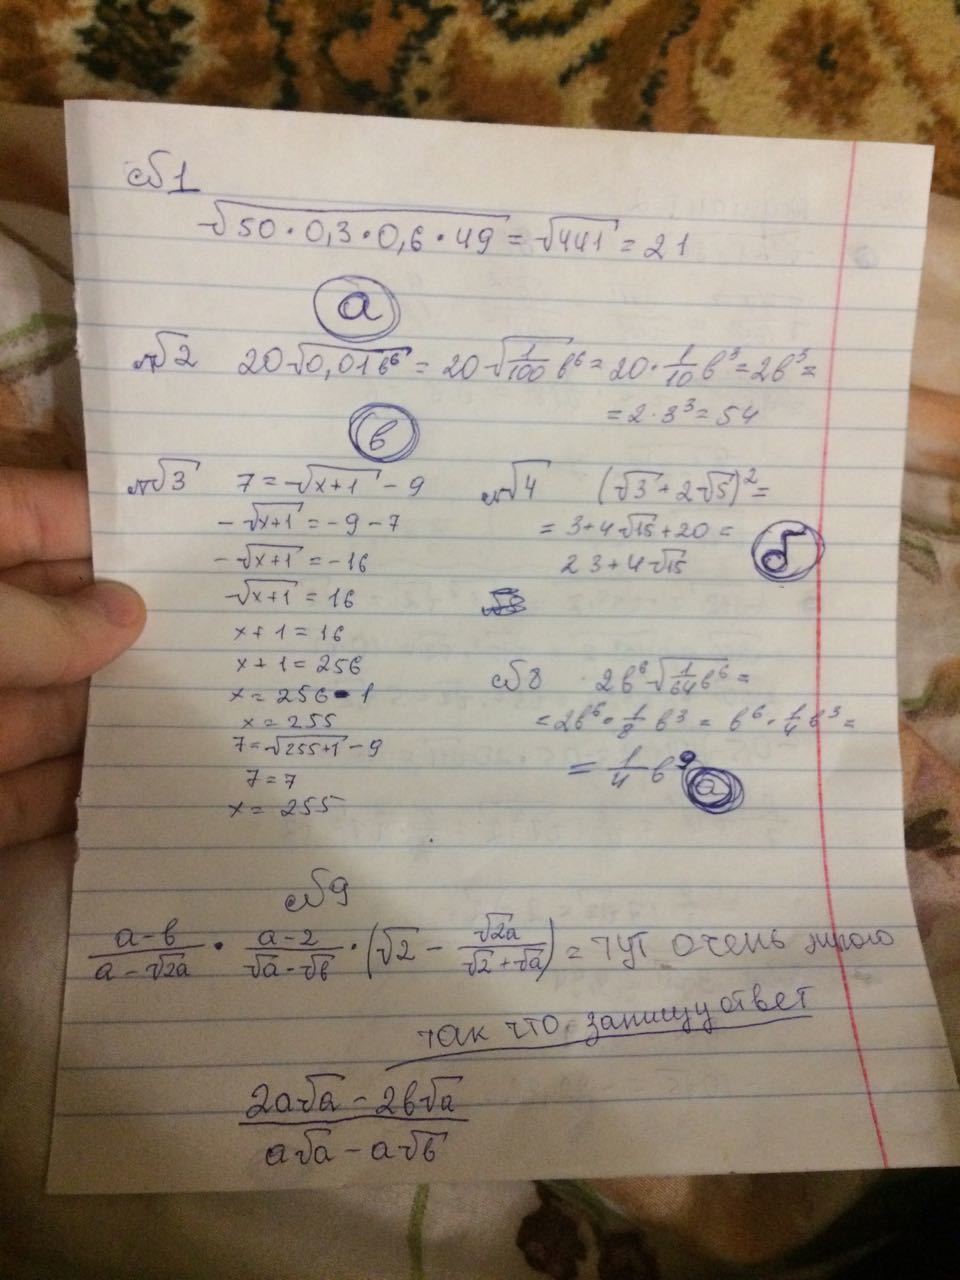 №1
√50·0,3·0,6·49 = √441 = 21
а
№2 20√0,01в⁶ = 20√1/100 в⁶ = 20·1/10 в³ = 2в³ =
= 2·3³ = 54
в
№3
7 = √x+1 - 9
-√x+1 = -9-7
-√x+1 = -16
√x+1 = 16
x+1 = 16
x+1 = 256
x = 256-1
x = 255
7 = √255+1 - 9
7 = 7
x = 255
№4 (√3+2√5)² =
= 3+4√15+20 =
23+4√15
б
№8 2в⁶√1/64 в⁶ =
= 2в⁶·1/8 в³ = в⁶·1/4 в³ =
= 1/4 в⁹
а
№9
а-в/а-√2а · а-2/√а-√в · (√2 - √2а/√2+√а) = тут очень много
так что запишу ответ
2а√а - 2в√а
а√а - а√в